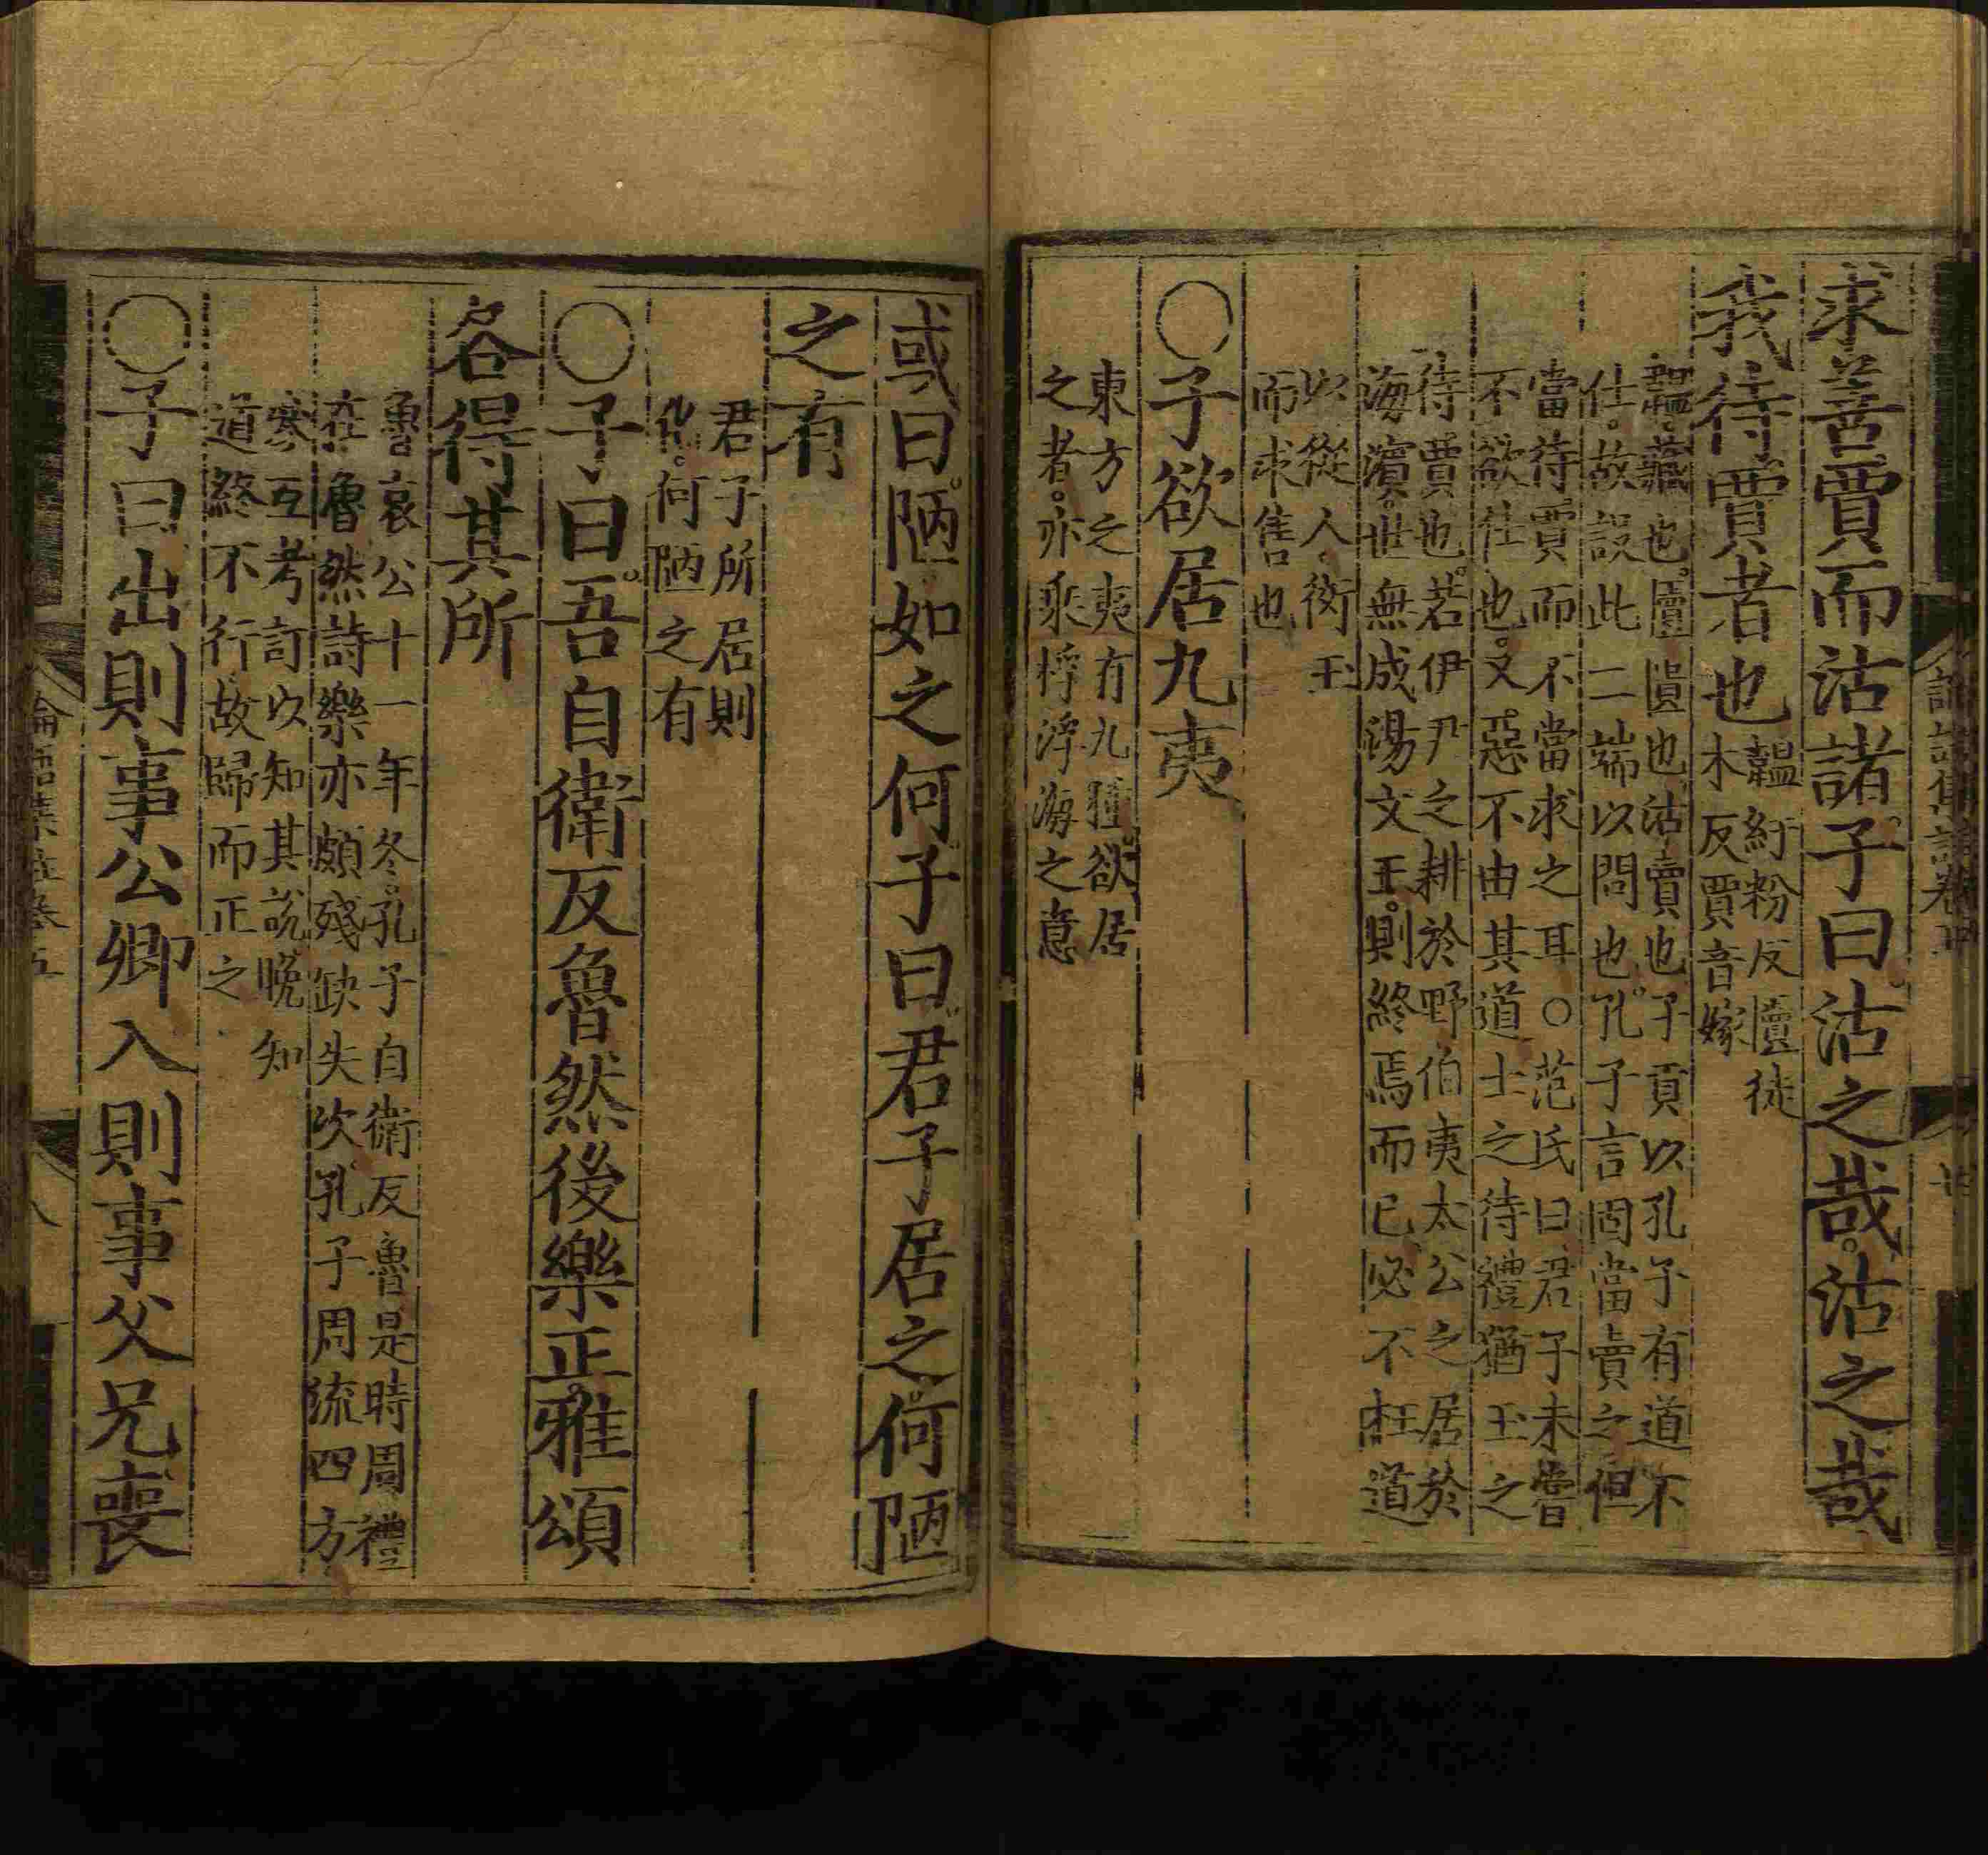 求善賈而沽諸子曰沽之哉沽之哉
我待賈者也韞紆粉反匵徒
木反賈音嫁
韞藏也匵匱也沽賣也子貢以孔子有道不
仕故設此二端以問也孔子言固當賣之但
當待賈而不當求之耳○范氏曰君子未嘗
不欲仕也又惡不由其道士之待禮猶玉之
待賈也若伊尹之耕於野伯夷太公之居於
海濵世無成湯文王則終焉而已必不枉道
以從人衒玉
而求售也
○子欲居九夷
東方之夷有九種欲居
之者亦乘桴浮海之意
或曰陋如之何子曰君子居之何陋
之有
君子所居則
化何陋之有
○子曰吾自衛反魯然後樂正雅頌
各得其所
魯哀公十一年冬孔子自衛反魯是時周禮
在魯然詩樂亦頗殘缺失次孔子周流四方
參互考訂以知其說晚知
道終不行故歸而正之
○子曰出則事公卿入則事父兄喪